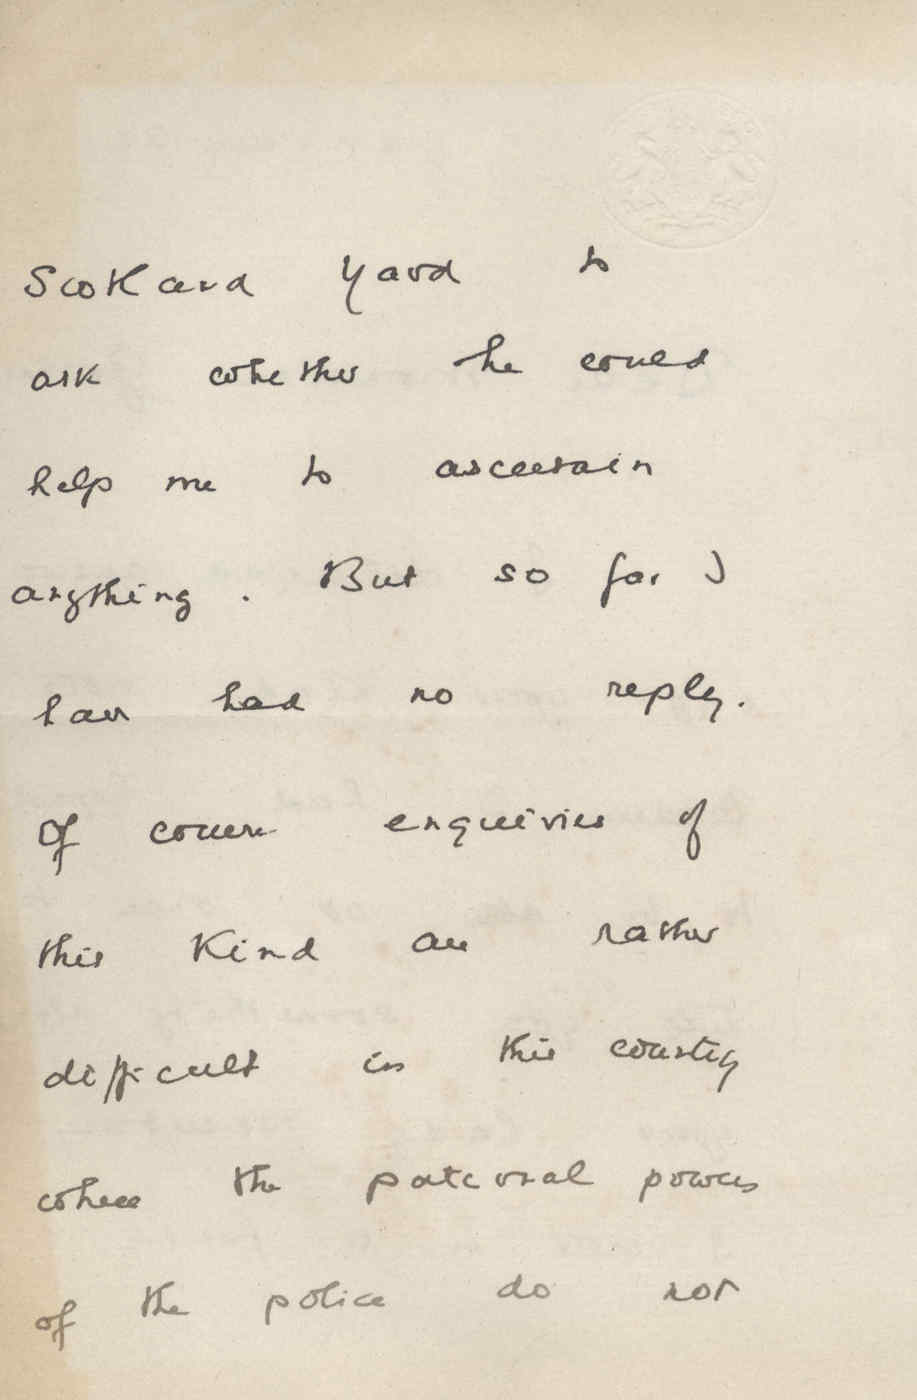 Scotland Yard to
ask whether he could
help me to ascertain
anything. But so far I
have had no reply.
Of course enquiries of
this kind are rather
difficult in this country
where the paternal powers
of the police do not